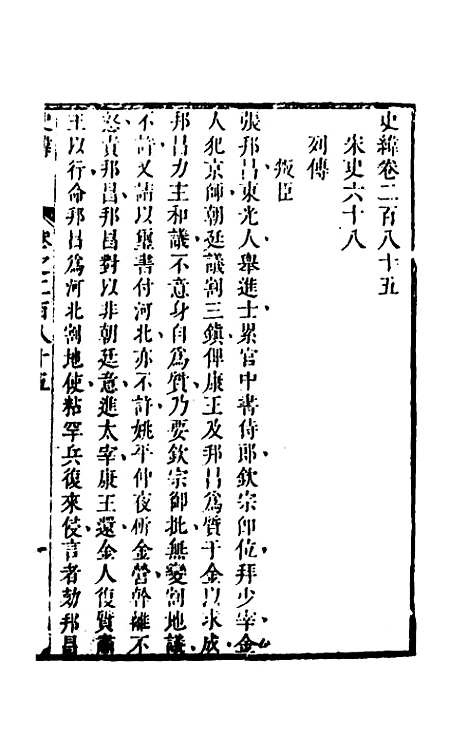 史緯卷二百八十五
宋史六十八
列傳
叛臣
張邦昌東光人舉進士累官中書侍郎欽宗卽位拜少宰金
人犯京師朝廷議割三鎮俾康王及邦昌爲質于金以求成
邦昌力主和議不意身自爲質乃要欽宗御批無變割地議
不許又請以璽書付河北亦不許姚平仲夜斫金營斡離不
怒責邦昌邦昌對以非朝廷意進太宰康王還金人復質肅
王以行命邦昌爲河北割地使粘罕兵復來侵言者劾邦昌
史緯
卷之二百八十五
一